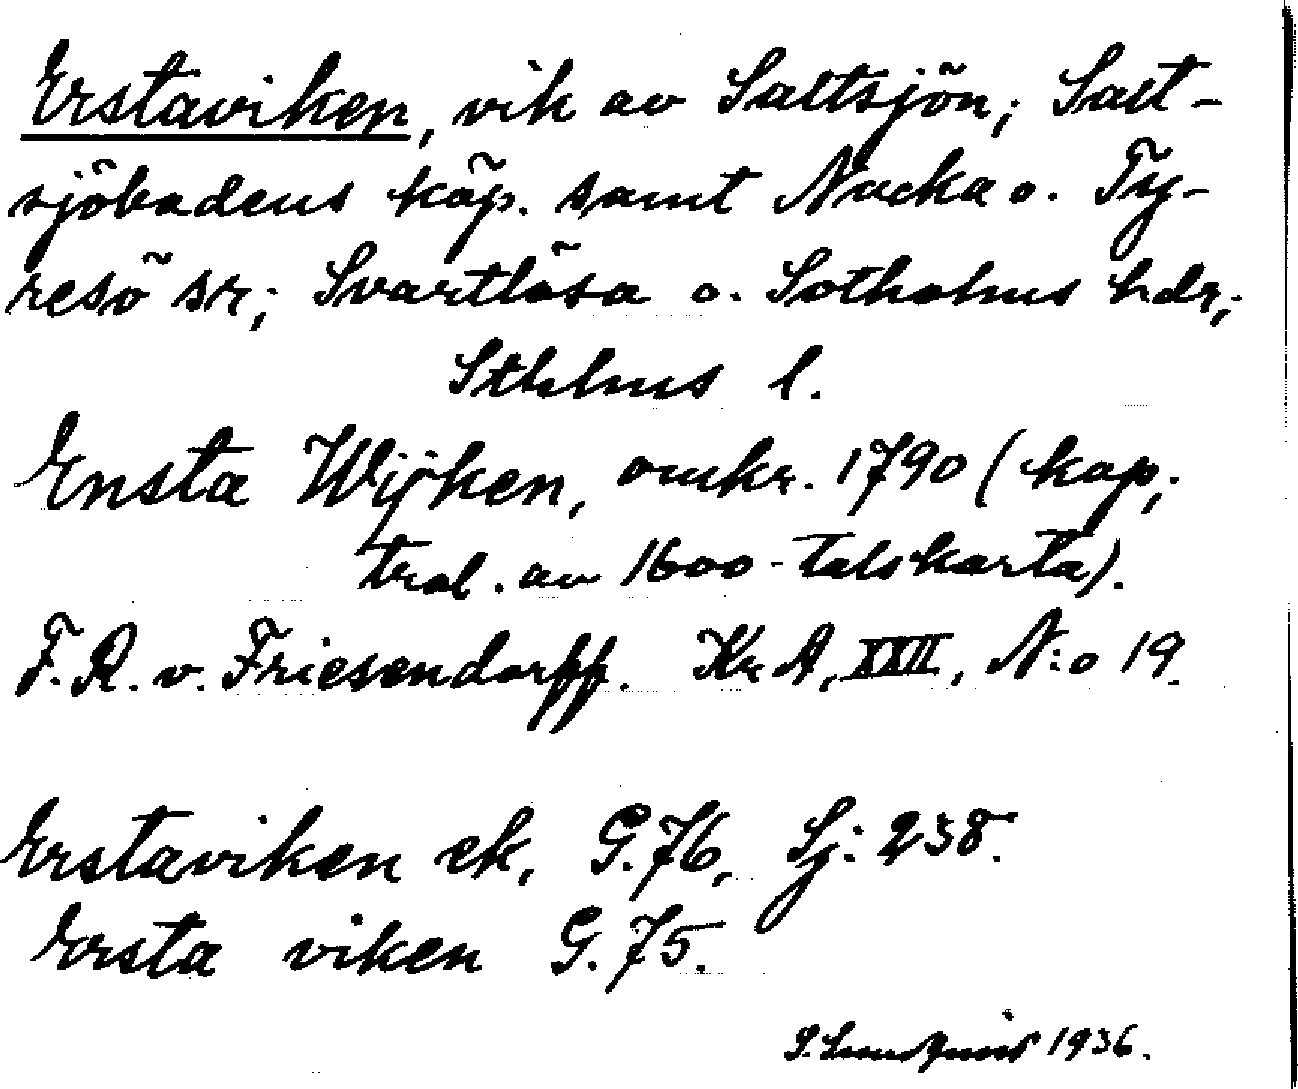 Erstaviken, vik av Saltsjön; Salt-
sjöbadens köp. samt Nacka o. Ty-
resö sr; Svartlösa o. Sotholms hdr,
Sthlms l.
Ensta Wijken, omkr. 1790 (kop,
tral. av 1600-talskarta).
F. R. v. Friesendorff. Kr A, XXII, N:o 19.
Erstaviken ek, G. 76, Sj: 238.
Ersta viken G. 75.
1936.